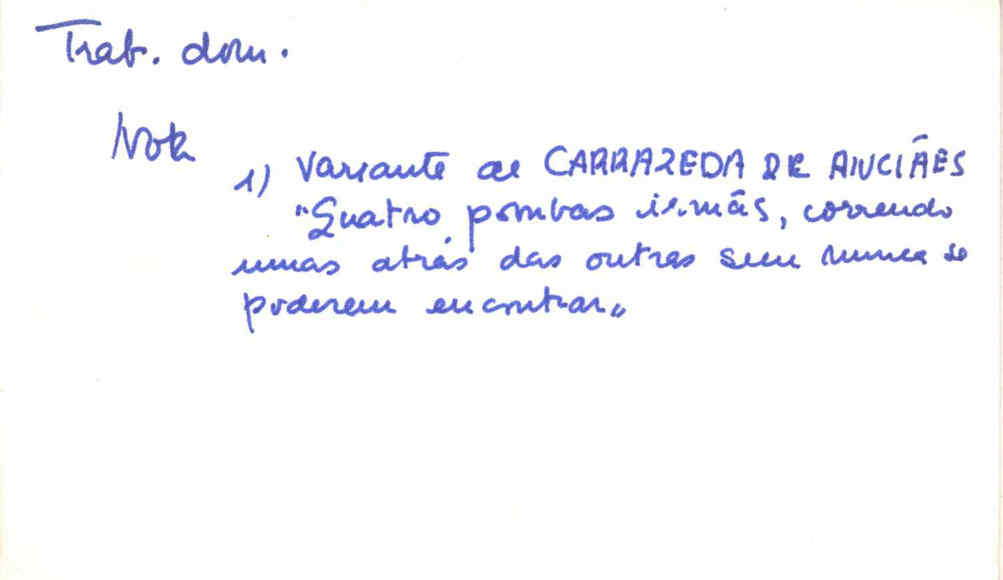 Trab. dom.
Nota
1) Variante de CARRAZEDA DE ANCIÃES
"Quatro pombas irmãs, correndo
umas atrás das outras sem nunca se
poderem encontrar„